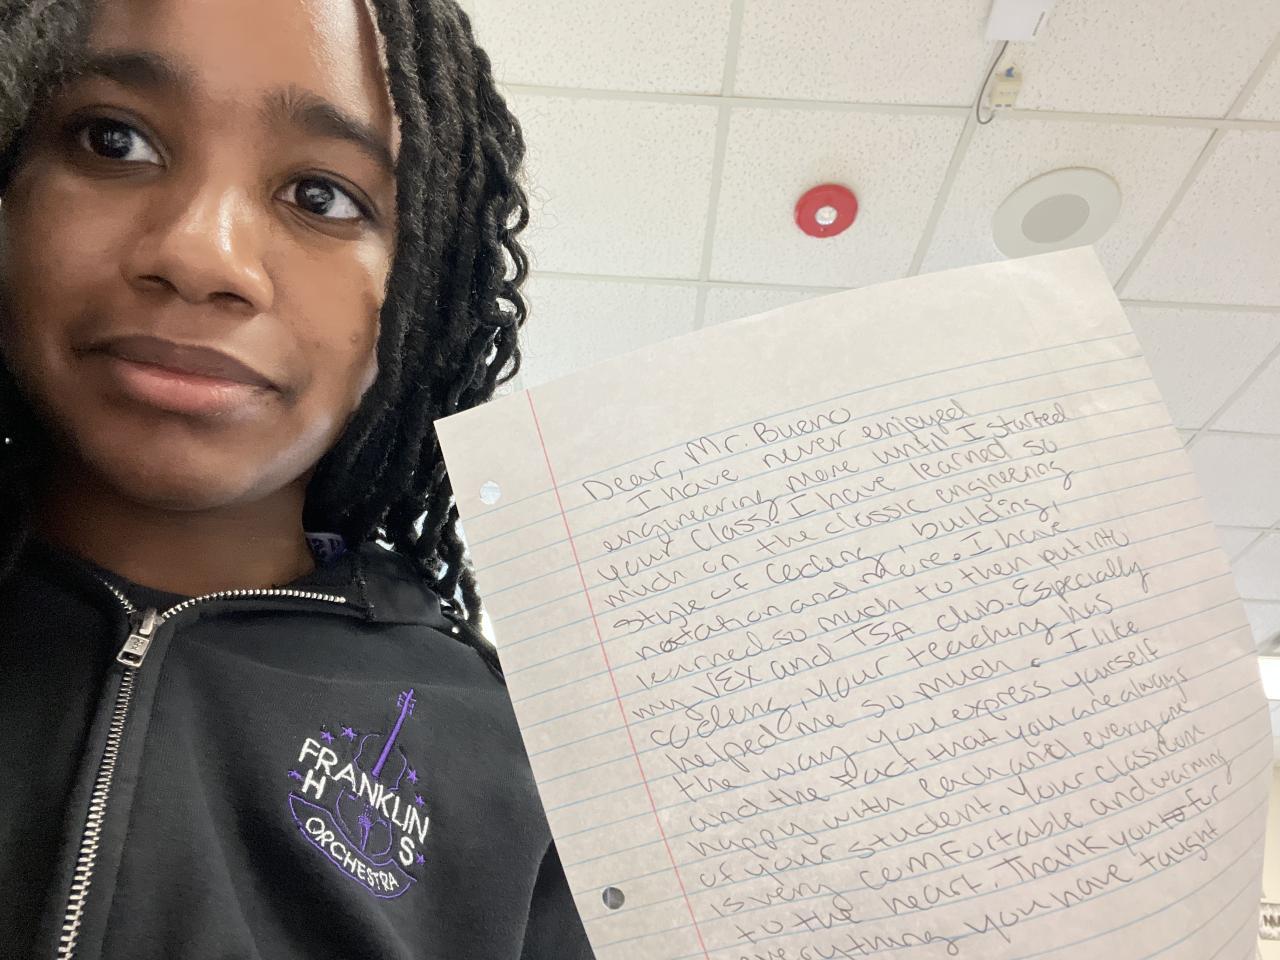 Dear, Mr. Bueno
I have never enjoyed
engineering more until I started
your class! I have learned so
much on the classic engineering
style of coding, building,
notation and more. I have
learned so much to then put into
my VEX and TSA club. Especially
coding, your teaching has
helped me so much. I like
the way you express yourself
and the fact that you are always
happy with each and every one
of your student. Your classroom
is very comfortable and warming
to the heart. Thank you for
everything you have taught
FRANKLIN
H S
ORCHESTRA